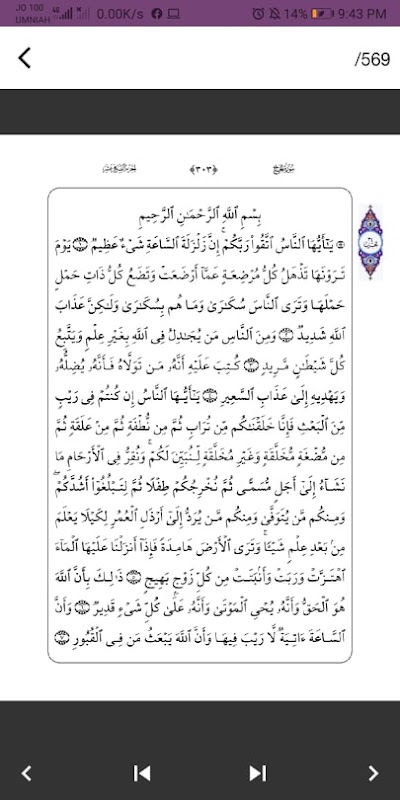 JO 100 4G 0.00K/s 14% 9:43 PM
UMNIAH
/569
سورة الحج ﴿٣٠٣﴾
بِسْمِ اللَّهِ الرَّحْمَٰنِ الرَّحِيمِ
يَٰٓأَيُّهَا النَّاسُ اتَّقُوا رَبَّكُمْ إِنَّ زَلْزَلَةَ السَّاعَةِ شَىْءٌ عَظِيمٌ يَوْمَ
تَرَوْنَهَا تَذْهَلُ كُلُّ مُرْضِعَةٍ عَمَّا أَرْضَعَتْ وَتَضَعُ كُلُّ ذَاتِ حَمْلٍ
حَمْلَهَا وَتَرَى النَّاسَ سُكَٰرَىٰ وَمَا هُم بِسُكَٰرَىٰ وَلَٰكِنَّ عَذَابَ
اللَّهِ شَدِيدٌ وَمِنَ النَّاسِ مَن يُجَٰدِلُ فِى اللَّهِ بِغَيْرِ عِلْمٍ وَيَتَّبِعُ
كُلَّ شَيْطَٰنٍ مَّرِيدٍ كُتِبَ عَلَيْهِ أَنَّهُۥ مَن تَوَلَّاهُ فَأَنَّهُۥ يُضِلُّهُۥ
وَيَهْدِيهِ إِلَىٰ عَذَابِ السَّعِيرِ يَٰٓأَيُّهَا النَّاسُ إِن كُنتُمْ فِى رَيْبٍ
مِّنَ الْبَعْثِ فَإِنَّا خَلَقْنَٰكُم مِّن تُرَابٍ ثُمَّ مِن نُّطْفَةٍ ثُمَّ مِنْ عَلَقَةٍ ثُمَّ
مِن مُّضْغَةٍ مُّخَلَّقَةٍ وَغَيْرِ مُخَلَّقَةٍ لِّنُبَيِّنَ لَكُمْ وَنُقِرُّ فِى الْأَرْحَامِ مَا
نَشَآءُ إِلَىٰٓ أَجَلٍ مُّسَمًّى ثُمَّ نُخْرِجُكُمْ طِفْلًا ثُمَّ لِتَبْلُغُوٓا أَشُدَّكُمْ
وَمِنكُم مَّن يُتَوَفَّىٰ وَمِنكُم مَّن يُرَدُّ إِلَىٰٓ أَرْذَلِ الْعُمُرِ لِكَيْلَا يَعْلَمَ
مِنۢ بَعْدِ عِلْمٍ شَيْـًٔا وَتَرَى الْأَرْضَ هَامِدَةً فَإِذَآ أَنزَلْنَا عَلَيْهَا الْمَآءَ
اهْتَزَّتْ وَرَبَتْ وَأَنۢبَتَتْ مِن كُلِّ زَوْجٍۭ بَهِيجٍ ذَٰلِكَ بِأَنَّ اللَّهَ
هُوَ الْحَقُّ وَأَنَّهُۥ يُحْىِ الْمَوْتَىٰ وَأَنَّهُۥ عَلَىٰ كُلِّ شَىْءٍ قَدِيرٌ وَأَنَّ
السَّاعَةَ ءَاتِيَةٌ لَّا رَيْبَ فِيهَا وَأَنَّ اللَّهَ يَبْعَثُ مَن فِى الْقُبُورِ